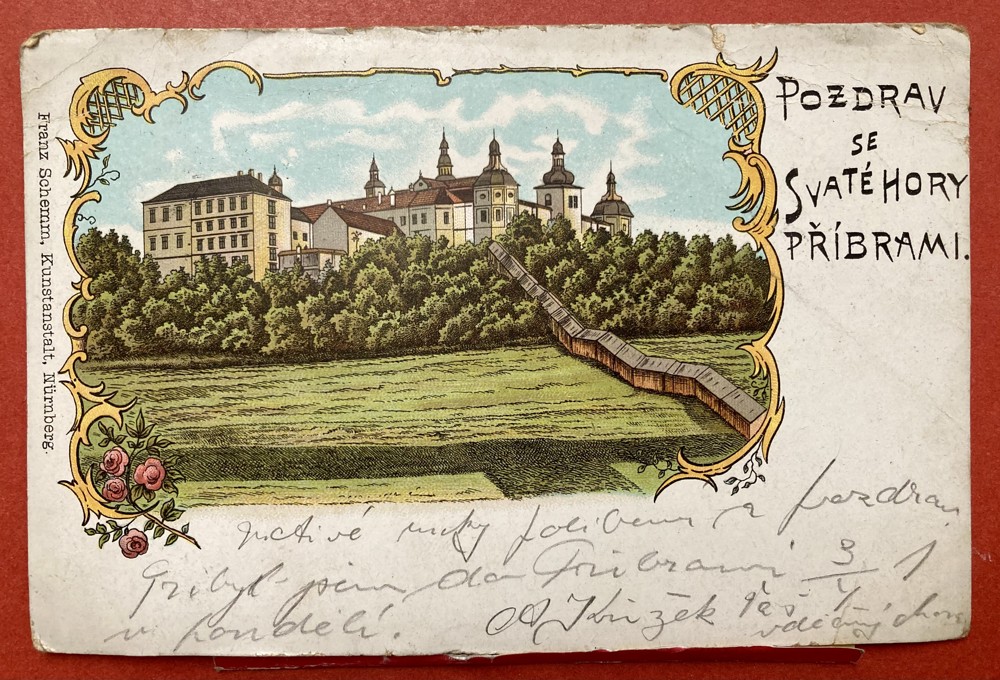 POZDRAV
SE
SVATÉ HORY
PŘÍBRAMI.
Franz Schemm, Kunstanstalt, Nürnberg.
uctivé ruky políbení a pozdrav
Přibyl jsem do Příbrami 3/V 1
v pondělí. A Křížek Váš
vděčný